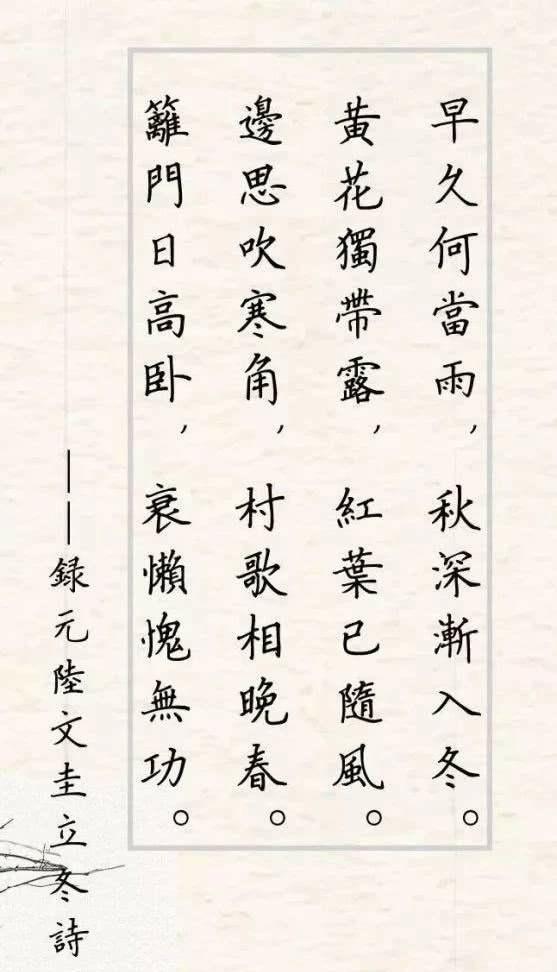 早久何當雨，秋深漸入冬。
黃花獨帶露，紅葉已隨風。
邊思吹寒角，村歌相晚春。
籬門日高卧，衰懶愧無功。
——録元陸文圭立冬詩